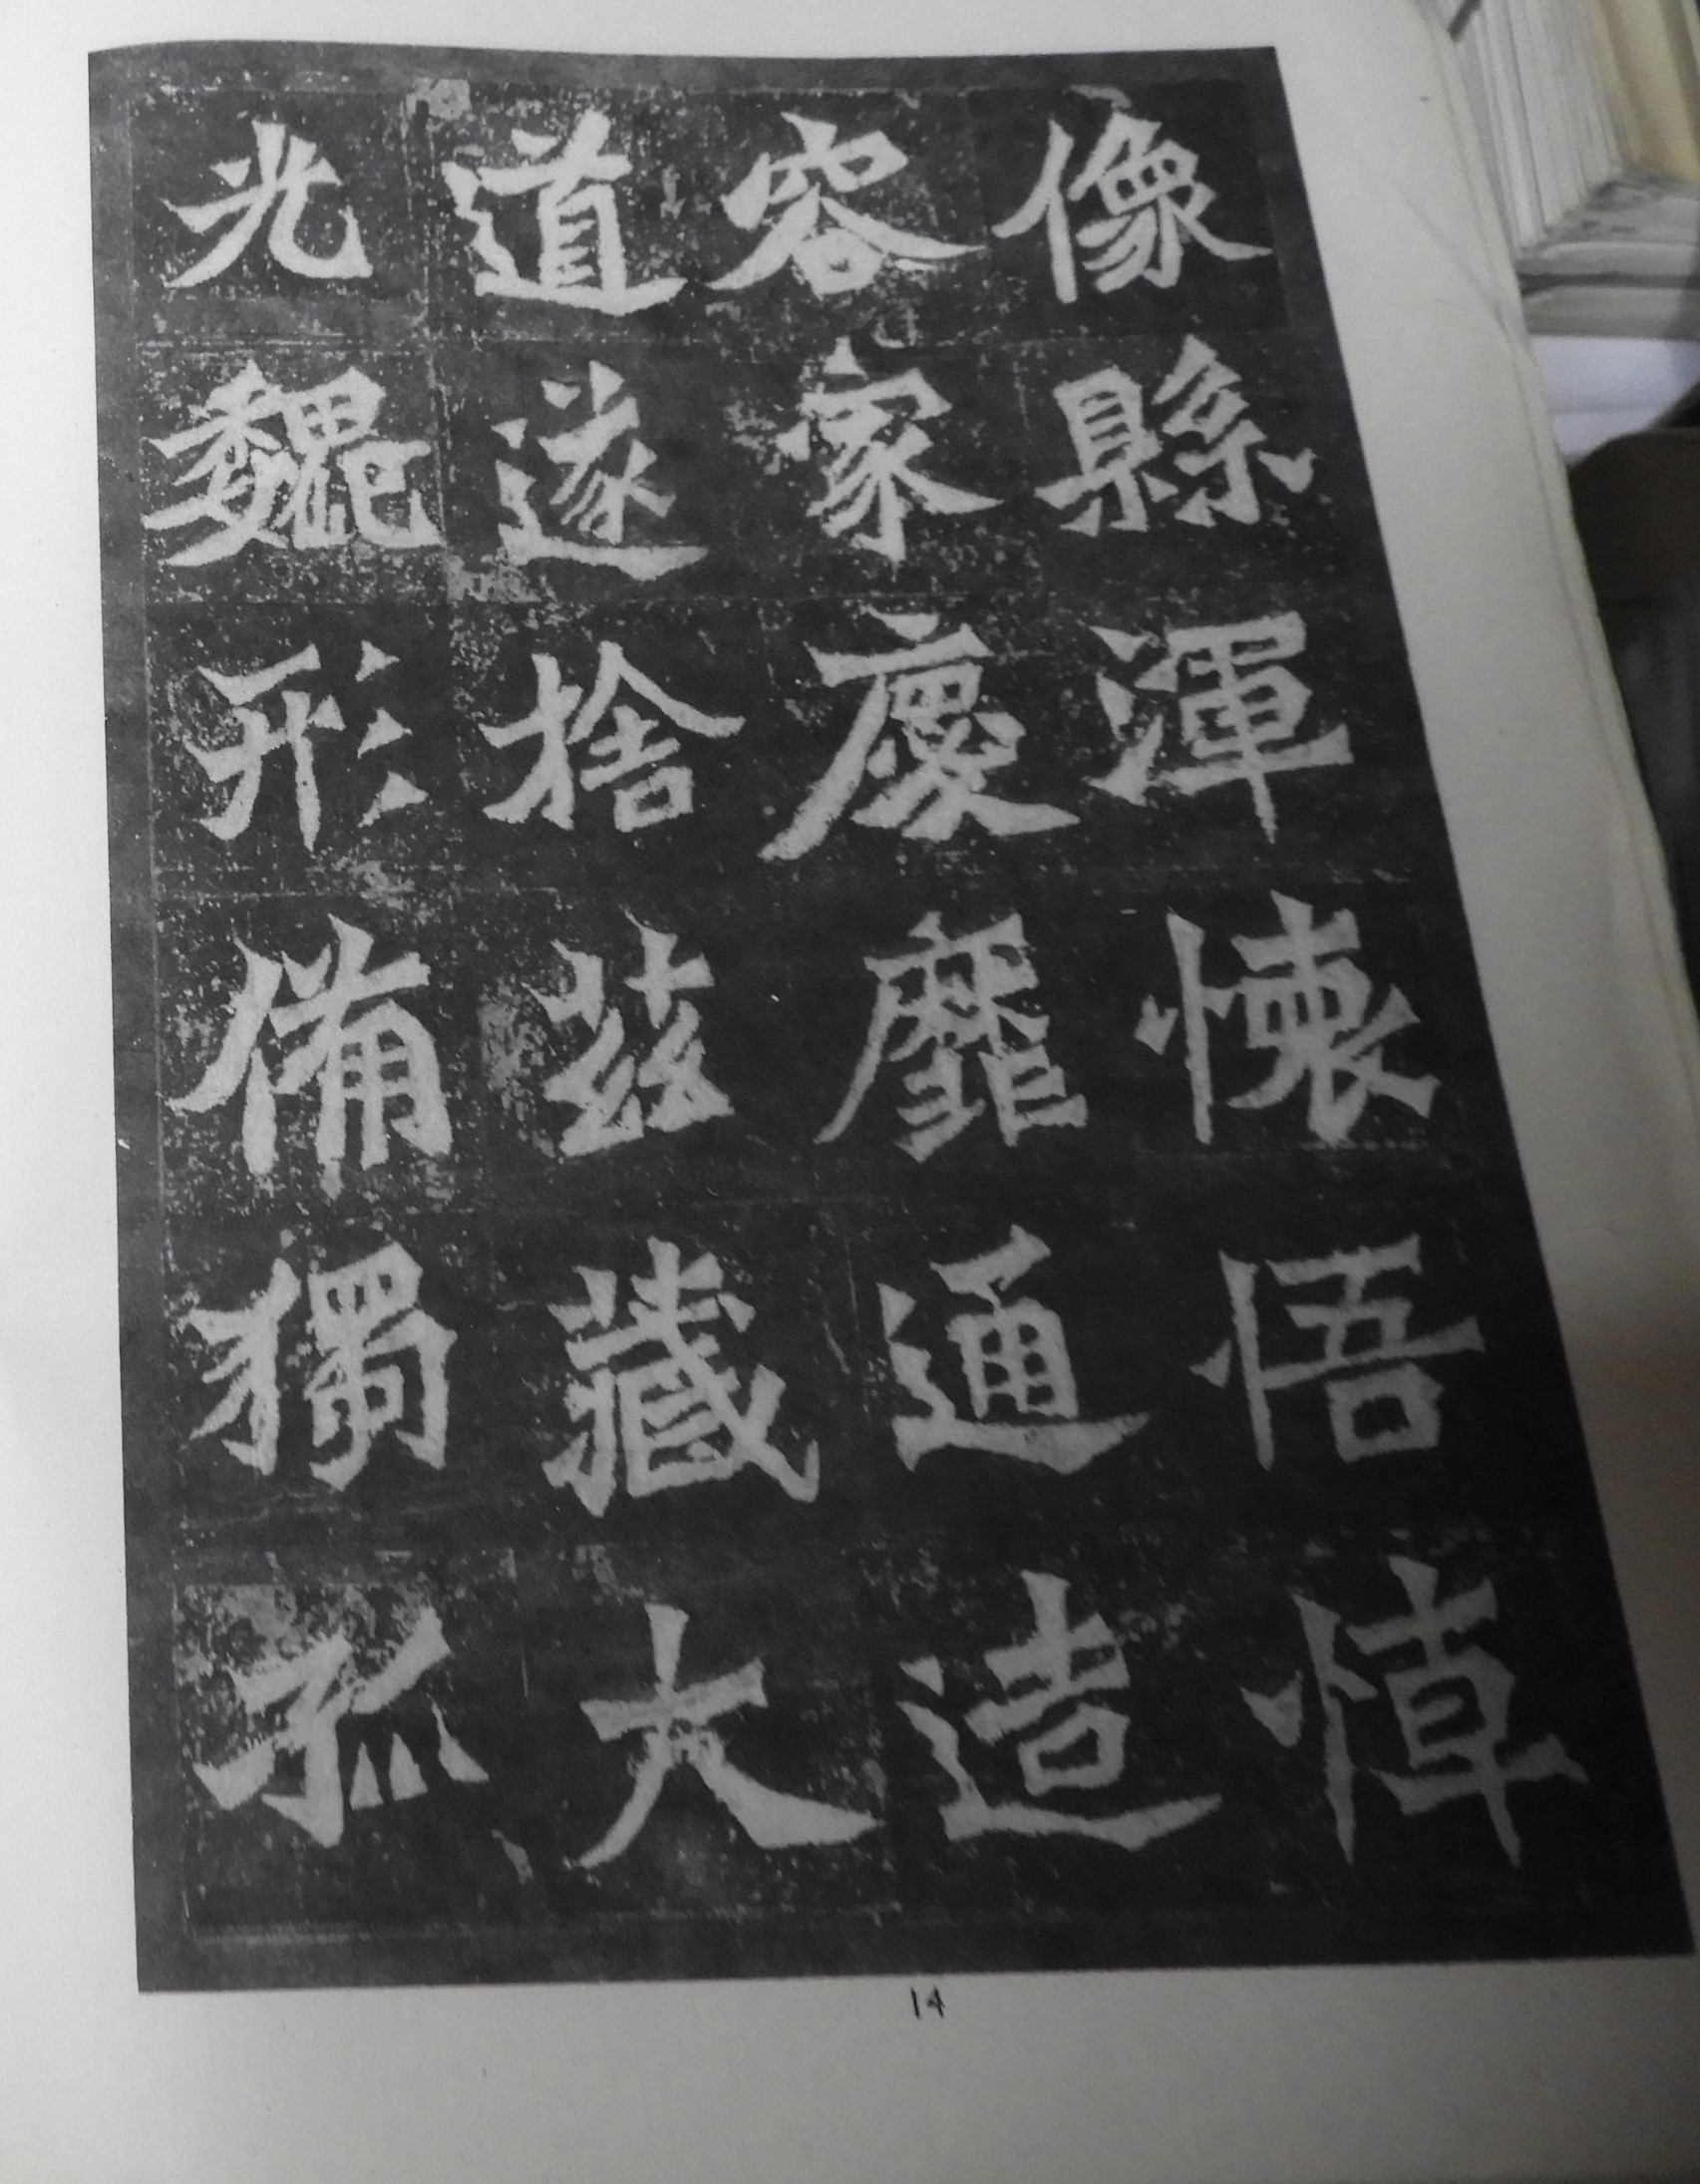 像縣渾懷悟悼
容家慶靡通造
道遂捨茲藏大
光魏形備獨孤
14